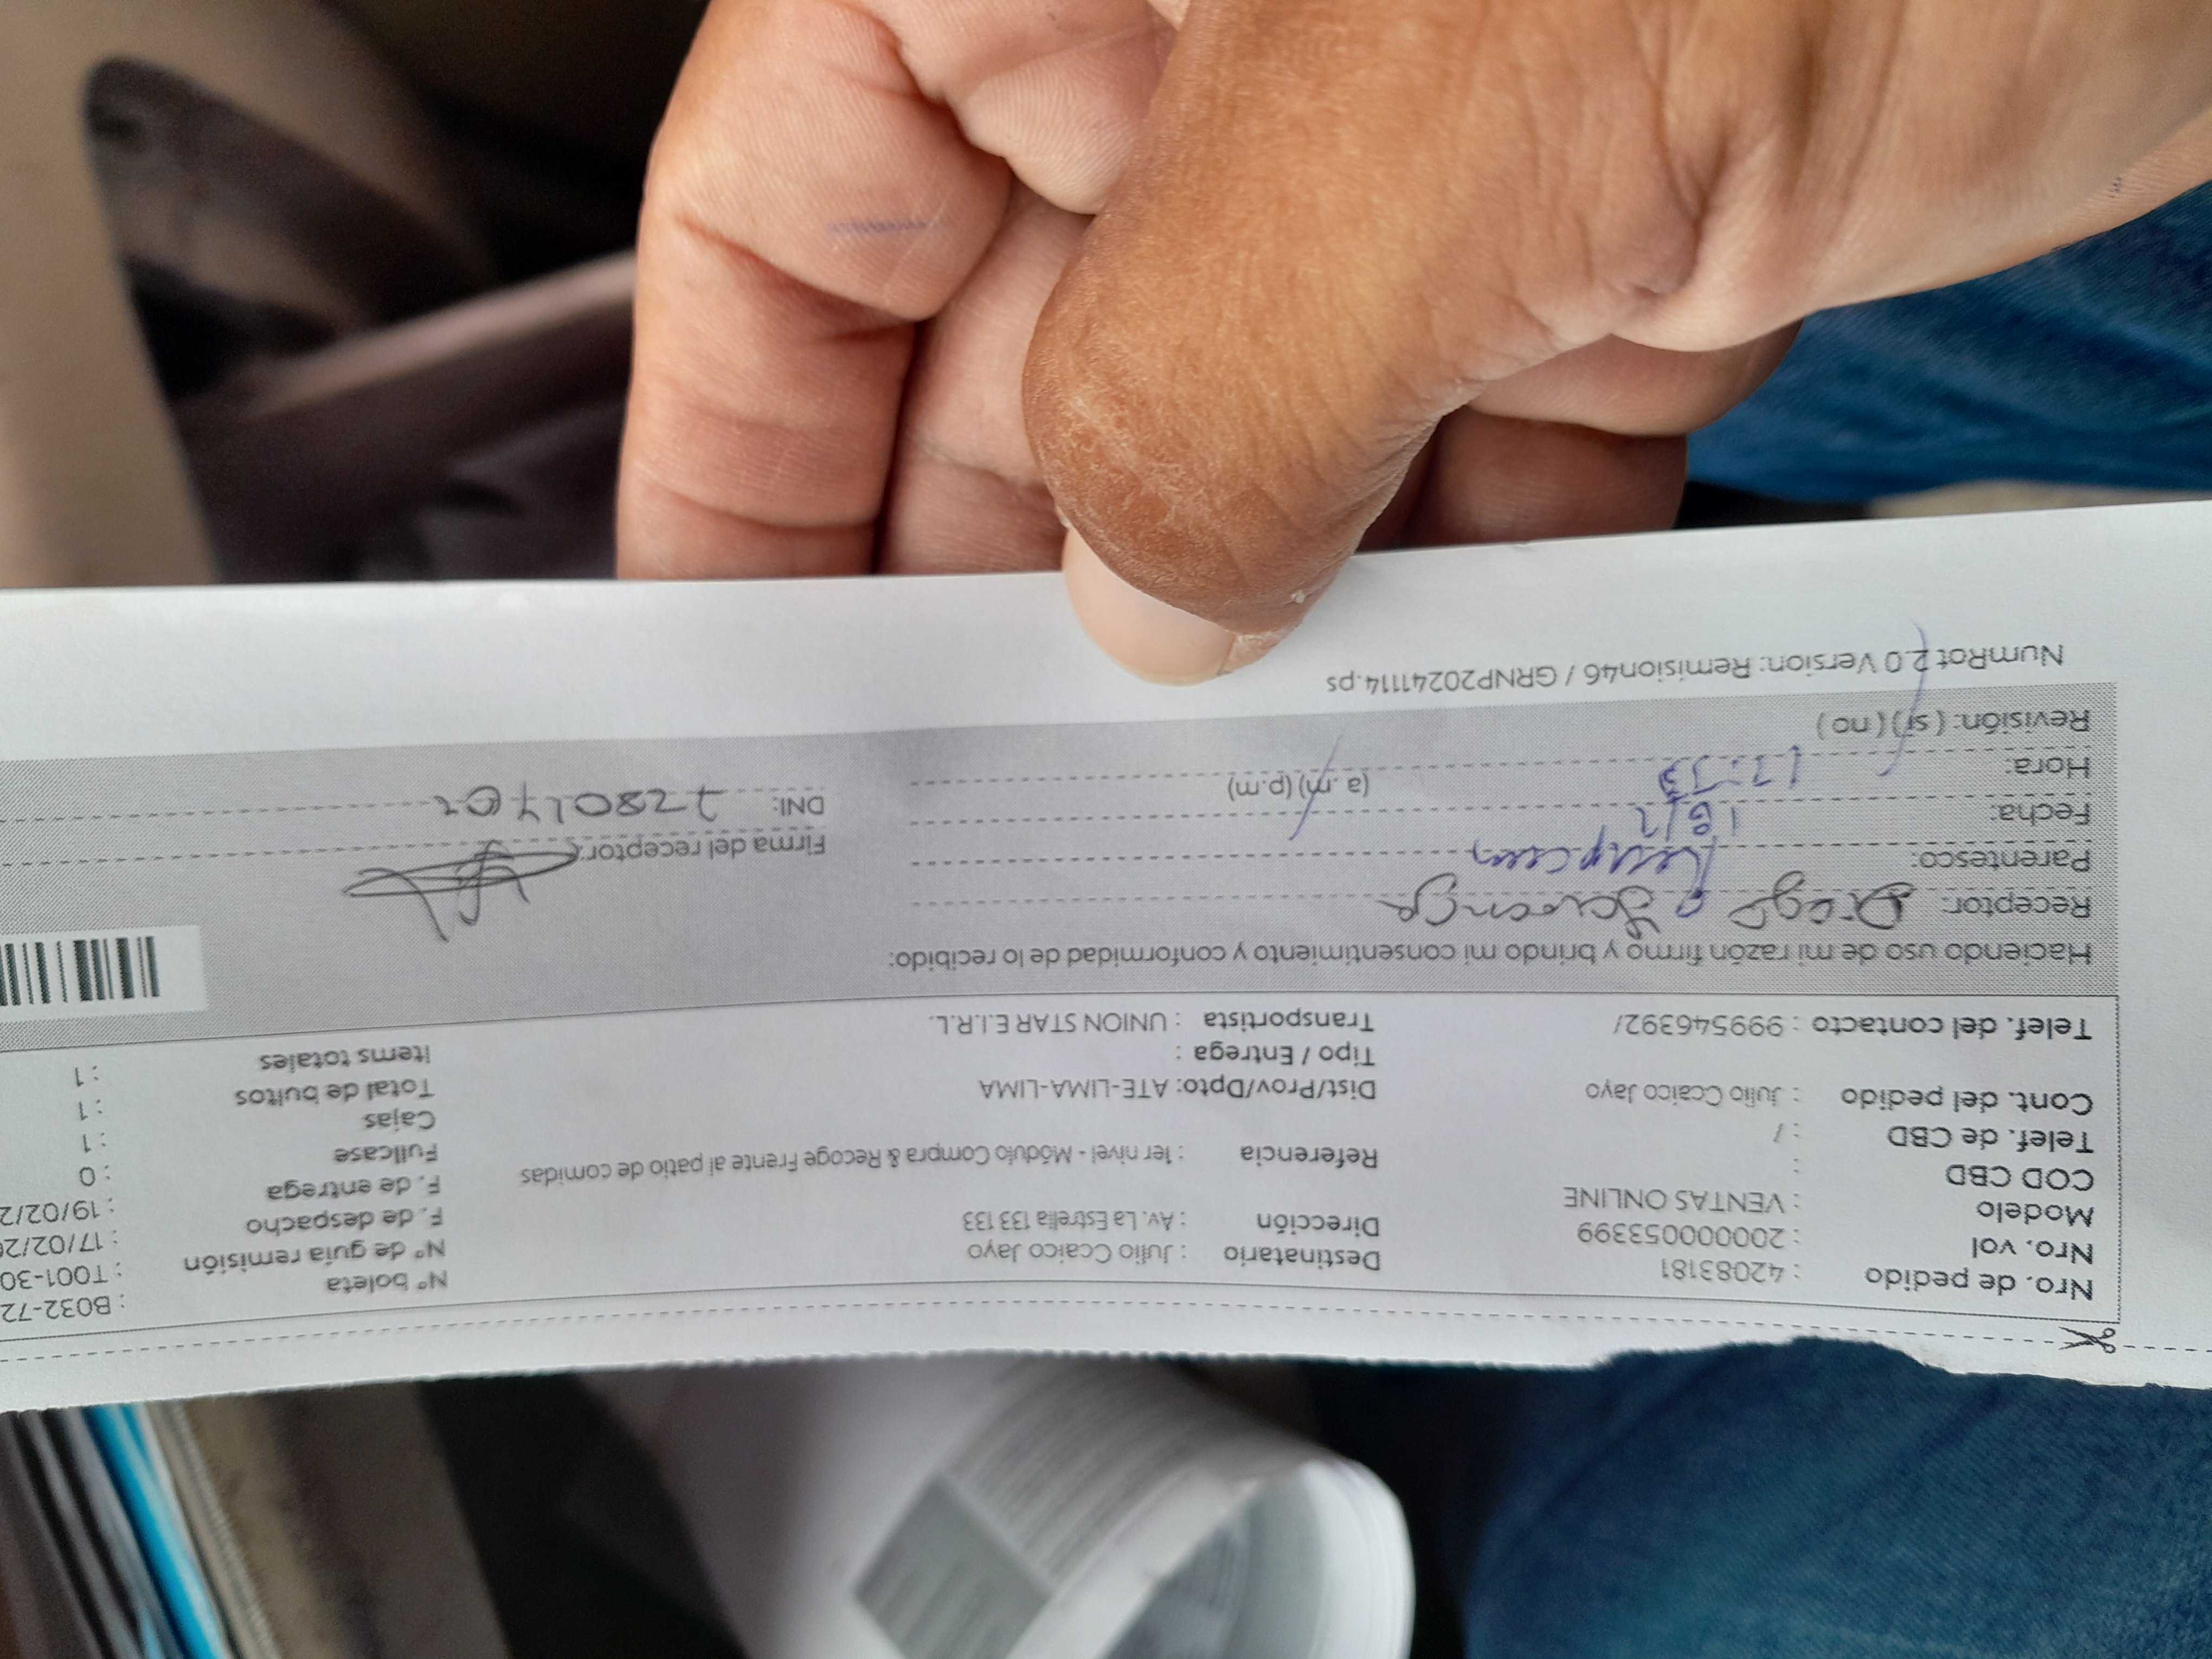 Nro. de pedido : 42083181
Nro. vol : 20000053399
Modelo : VENTAS ONLINE
COD CBD :
Telef. de CBD : /
Cont. del pedido : Julio Ccaico Jayo
Telef. del contacto : 999546392/
Destinatario : Julio Ccaico Jayo
Dirección : Av. La Estrella 133 133
Referencia : 1er nivel - Módulo Compra & Recoge Frente al patio de comidas
Dist/Prov/Dpto: ATE-LIMA-LIMA
Tipo / Entrega :
Transportista : UNION STAR E.I.R.L.
N° boleta : B032-72
N° de guía remisión : T001-30
F. de despacho : 17/02/2
F. de entrega : 19/02/2
Fullcase : 0
Cajas : 1
Total de bultos : 1
Items totales : 1
Haciendo uso de mi razón firmo y brindo mi consentimiento y conformidad de lo recibido:
Receptor: Diego
Parentesco:
Fecha: 18/2
Hora: (a.m) (p.m)
Revisión: (si) (no)
Firma del receptor:
DNI:
NumRot 2.0 Version: Remision46 / GRNP20241114.ps